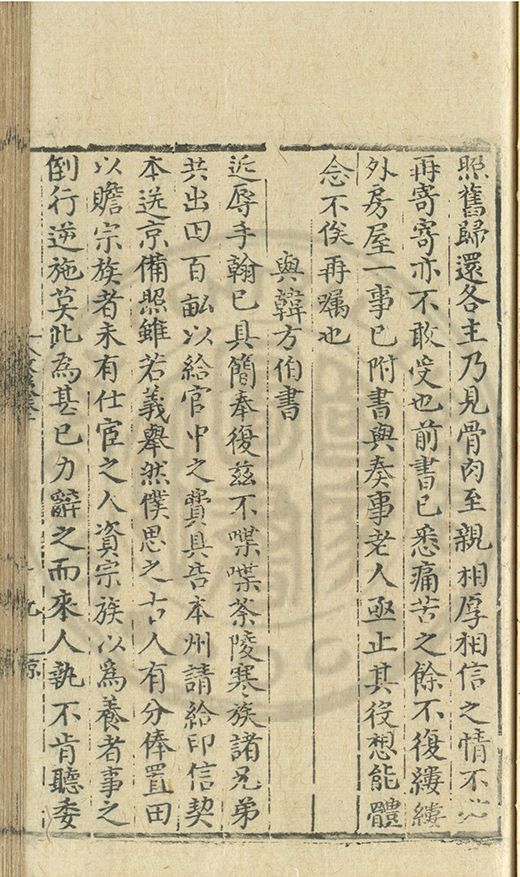 照舊歸還各主乃見骨肉至親相厚相信之情不必
再寄寄亦不敢受也前書已悉痛苦之餘不復縷縷
外房屋一事已附書與奏事老人亟止其役想能體
念不俟再囑也
與韓方伯書
近辱手翰已具簡奉復茲不喋喋茶陵寒族諸兄弟
共出田百畝以給官中之費具告本州請給印信契
本送京備照雖若義舉然僕思之古人有分俸置田
以贍宗族者未有仕宦之人資宗族以為養者事之
倒行逆施莫此為甚已力辭之而來人執不肯聽委
九